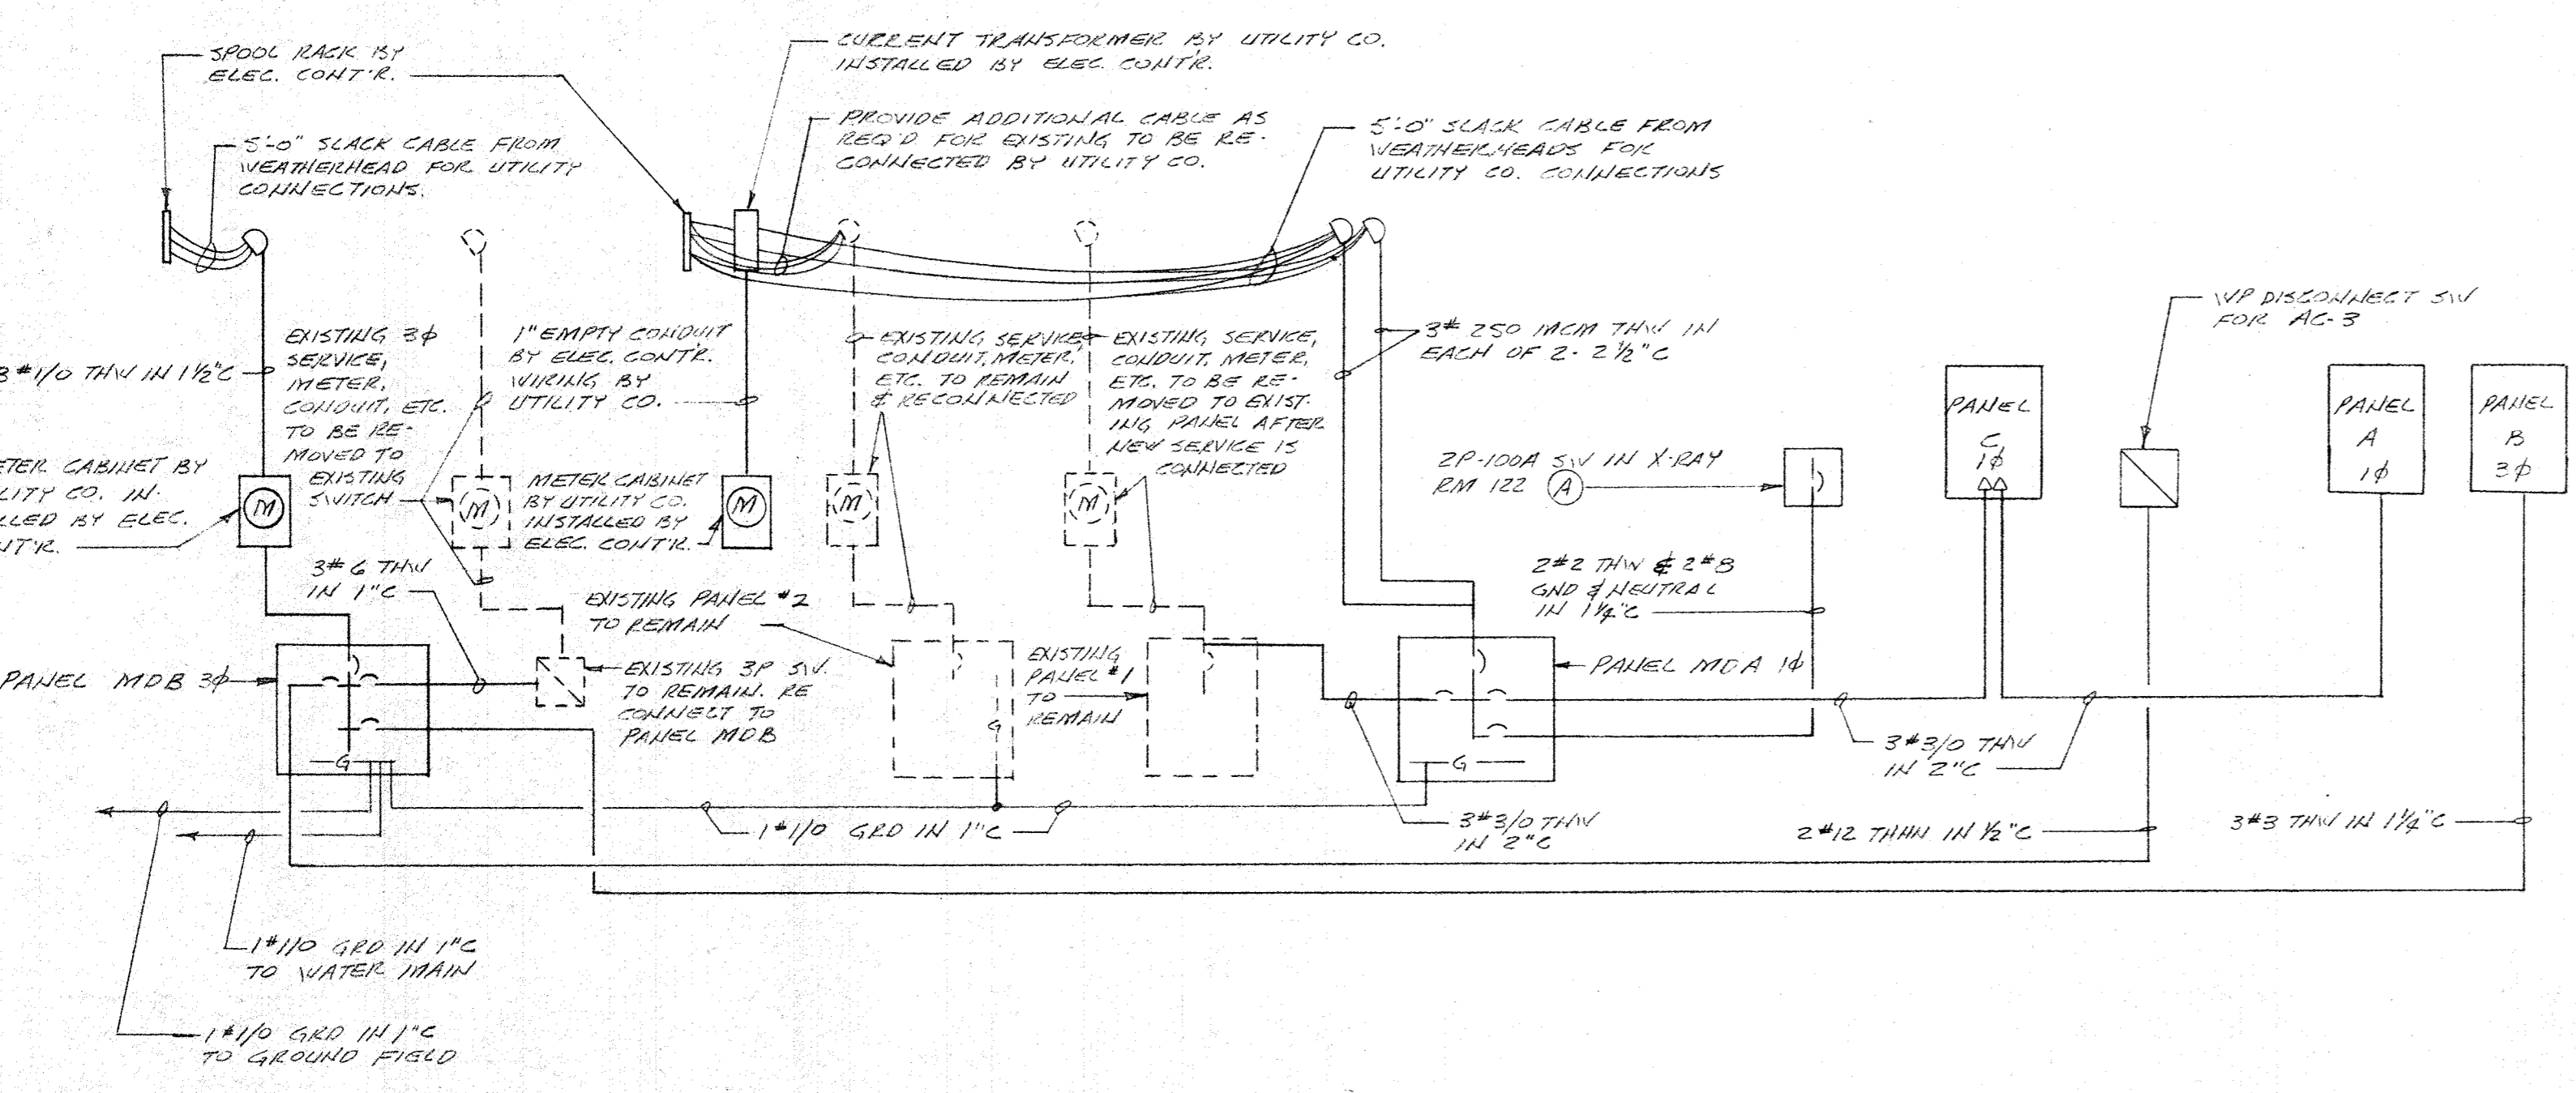 SPOOL RACK BY
ELEC. CONT'R.
CURRENT TRANSFORMER BY UTILITY CO.
INSTALLED BY ELEC. CONT'R.
5'-0" SLACK CABLE FROM
WEATHERHEAD FOR UTILITY
CONNECTIONS.
PROVIDE ADDITIONAL CABLE AS
REQ'D FOR EXISTING TO BE RE-
CONNECTED BY UTILITY CO.
5'-0" SLACK CABLE FROM
WEATHERHEADS FOR
UTILITY CO. CONNECTIONS
3#1/0 THW IN 1½"C
EXISTING 3φ
SERVICE,
METER,
CONDUIT, ETC.
TO BE RE-
MOVED TO
EXISTING
SWITCH
1" EMPTY CONDUIT
BY ELEC. CONT'R.
WIRING BY
UTILITY CO.
EXISTING SERVICE,
CONDUIT, METER,
ETC. TO REMAIN
& RECONNECTED
EXISTING SERVICE,
CONDUIT, METER,
ETC. TO BE RE-
MOVED TO EXIST-
ING PANEL AFTER
NEW SERVICE IS
CONNECTED
3# 250 MCM THW IN
EACH OF 2- 2½"C
WP DISCONNECT SW
FOR AC-3
ETER CABINET BY
LITY CO. IN-
LLED BY ELEC.
NT'R.
M
M
METER CABINET
BY UTILITY CO.
INSTALLED BY
ELEC. CONT'R.
M
M
M
2P-100A SW IN X-RAY
RM 122 A
PANEL
C
1φ
PANEL
A
1φ
PANEL
B
3φ
3#6 THW
IN 1"C
EXISTING PANEL #2
TO REMAIN
2#2 THW & 2#8
GND & NEUTRAL
IN 1¼"C
PANEL MDB 3φ
EXISTING 3P SW.
TO REMAIN. RE
CONNECT TO
PANEL MDB
G
EXISTING
PANEL #1
TO
REMAIN
PANEL MDA 1φ
G
G
3#3/0 THW
IN 2"C
1#1/0 GRD IN 1"C
3#3/0 THW
IN 2"C
2#12 THHN IN ½"C
3#3 THW IN 1¼"C
1#1/0 GRD IN 1"C
TO WATER MAIN
1#1/0 GRD IN 1"C
TO GROUND FIELD